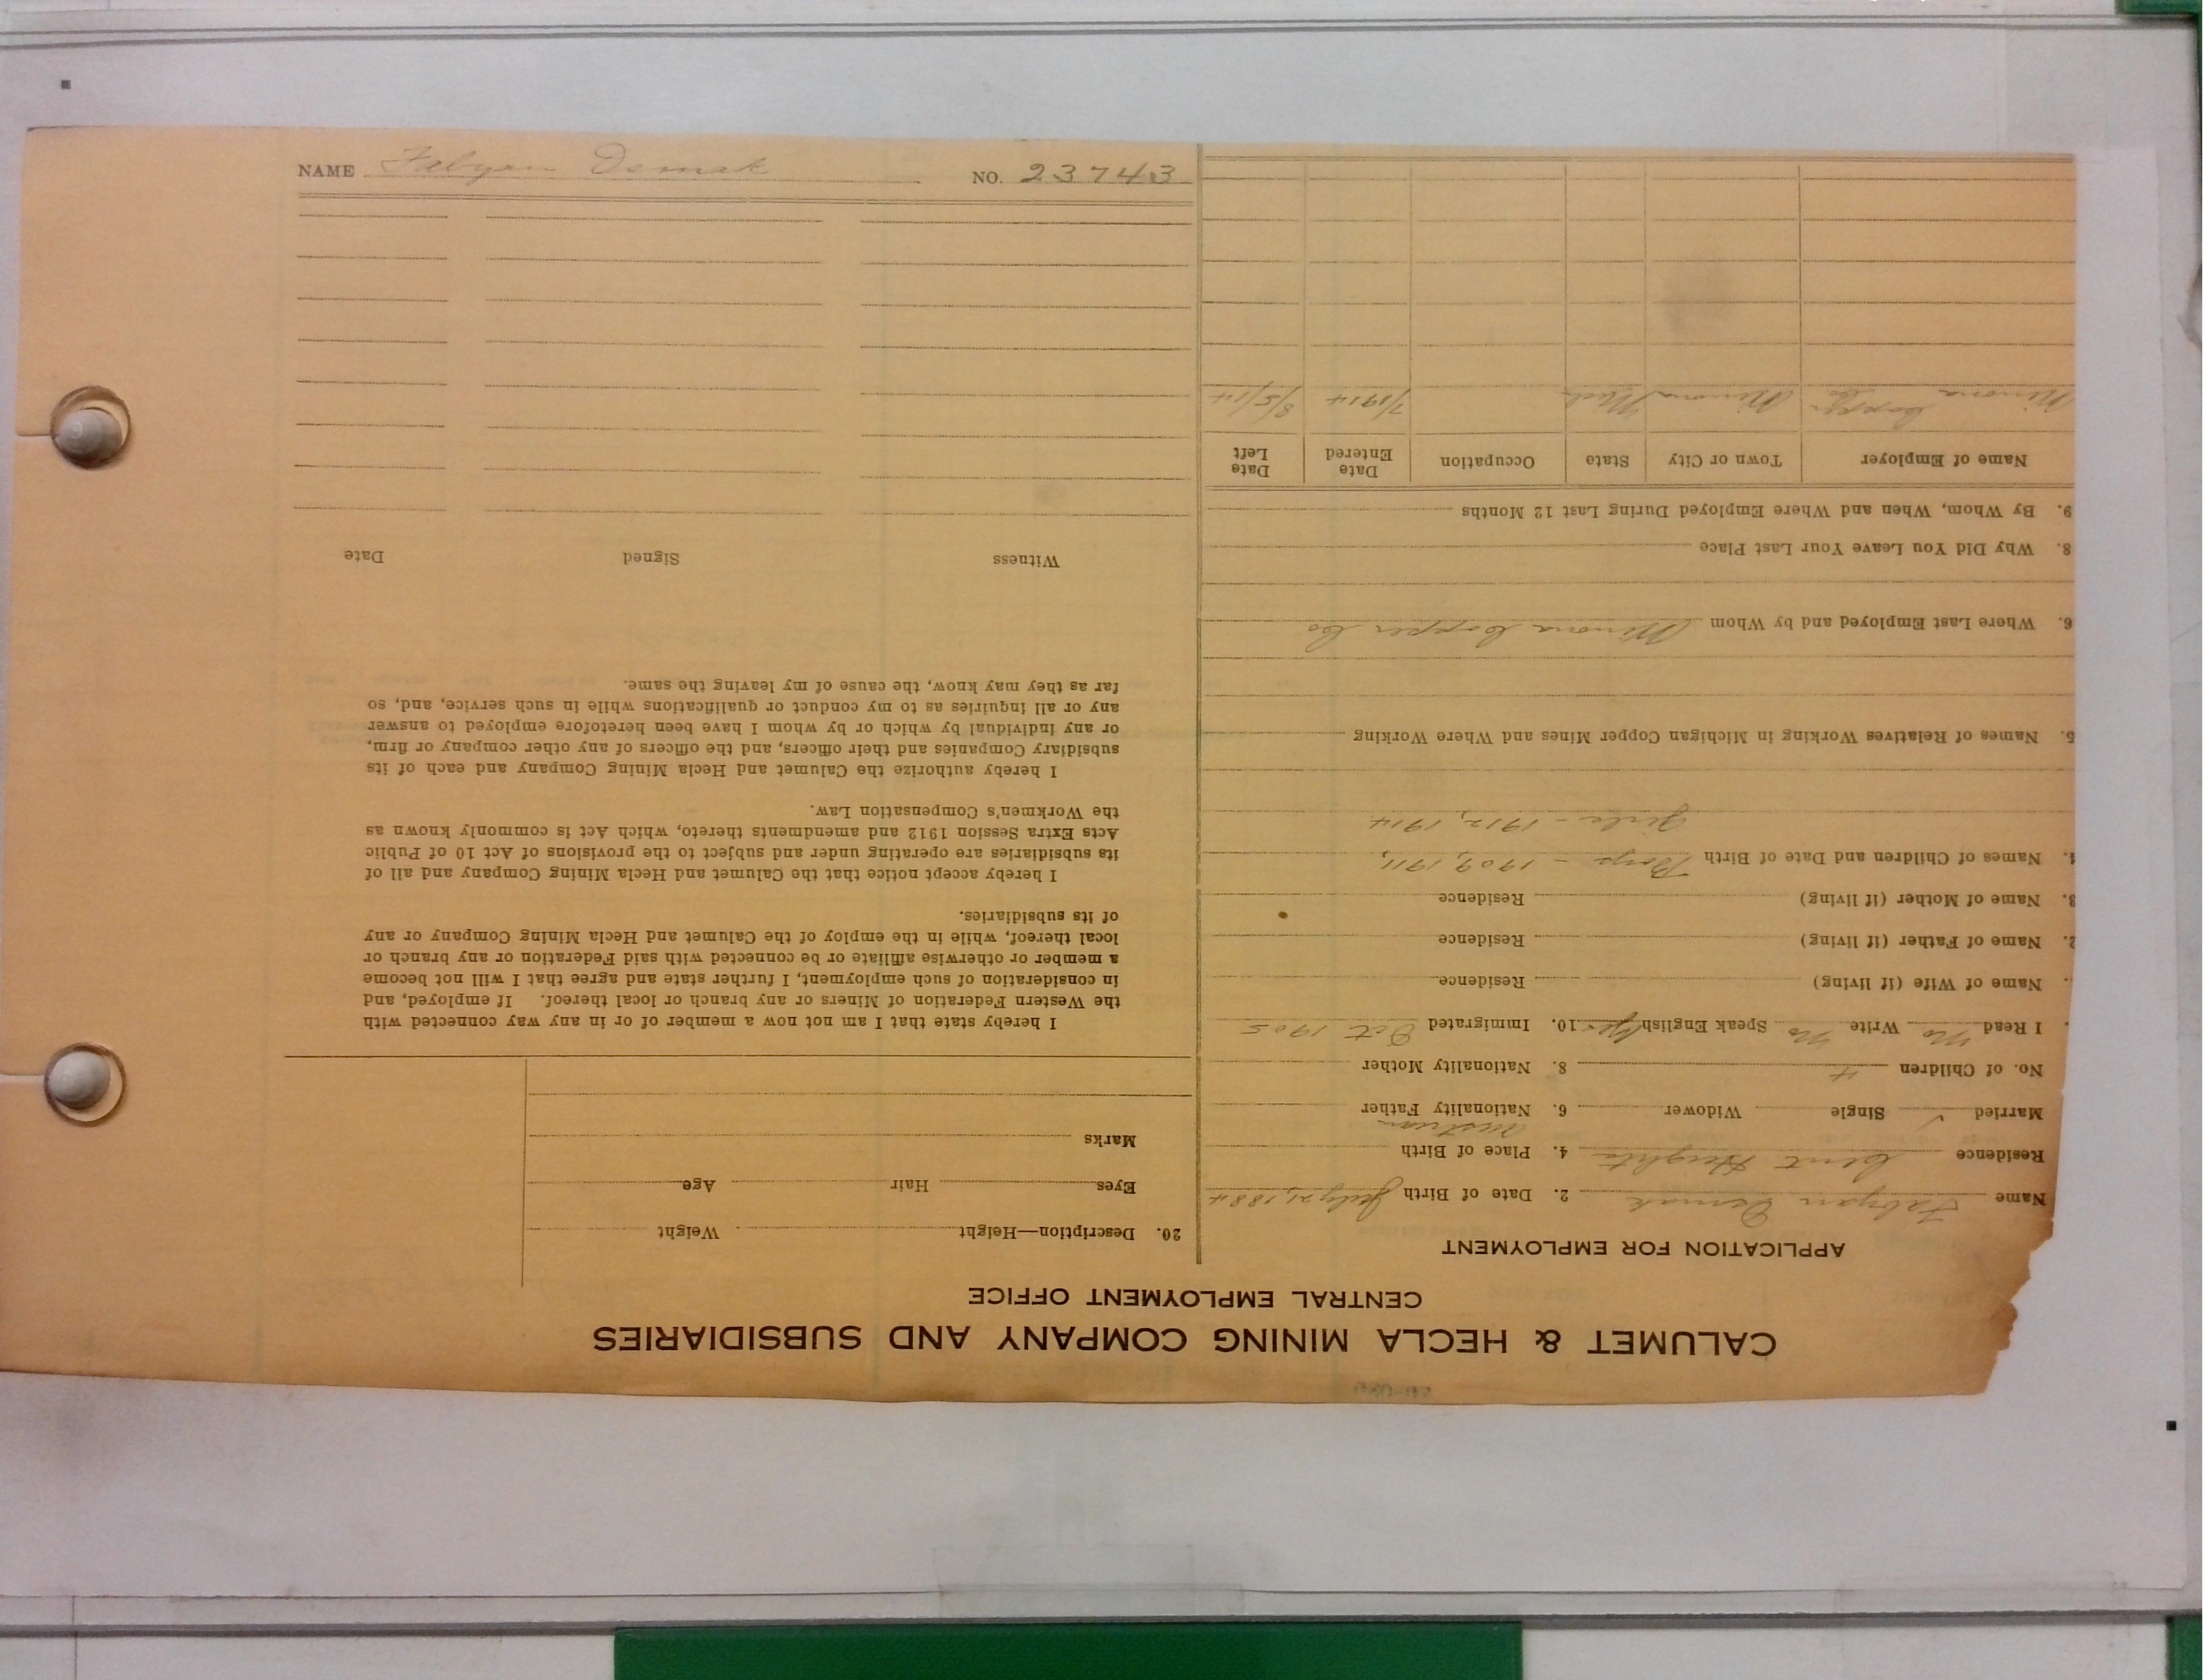 CALUMET & HECLA MINING COMPANY AND SUBSIDIARIES
CENTRAL EMPLOYMENT OFFICE
APPLICATION FOR EMPLOYMENT
Name Fabyan Osmak 2. Date of Birth July 21, 1884
Residence Cent Heights 4. Place of Birth Austrian
Married ✓ Single Widower 6. Nationality Father
No. of Children 4 8. Nationality Mother
I Read No Write No Speak English Yes 10. Immigrated Oct 1905
Name of Wife (if living) Residence
2. Name of Father (if living) Residence
3. Name of Mother (if living) Residence
4. Names of Children and Date of Birth Boys - 1909, 1911,
Girls - 1912, 1914
5. Names of Relatives Working in Michigan Copper Mines and Where Working
6. Where Last Employed and by Whom Winona Copper Co
8. Why Did You Leave Your Last Place
9. By Whom, When and Where Employed During Last 12 Months
Name of Employer Town or City State Occupation Date Entered Date Left
Winona Copper Co Winona Mich 7/1914 8/5/14
20. Description—Height Weight
Eyes Hair Age
Marks
I hereby state that I am not now a member of or in any way connected with
the Western Federation of Miners or any branch or local thereof. If employed, and
in consideration of such employment, I further state and agree that I will not become
a member or otherwise affiliate or be connected with said Federation or any branch or
local thereof, while in the employ of the Calumet and Hecla Mining Company or any
of its subsidiaries.
I hereby accept notice that the Calumet and Hecla Mining Company and all of
its subsidiaries are operating under and subject to the provisions of Act 10 of Public
Acts Extra Session 1912 and amendments thereto, which Act is commonly known as
the Workmen's Compensation Law.
I hereby authorize the Calumet and Hecla Mining Company and each of its
subsidiary Companies and their officers, and the officers of any other company or firm,
or any individual by which or by whom I have been heretofore employed to answer
any or all inquiries as to my conduct or qualifications while in such service, and, so
far as they may know, the cause of my leaving the same.
Witness Signed Date
NAME Fabyan Osmak NO. 23743